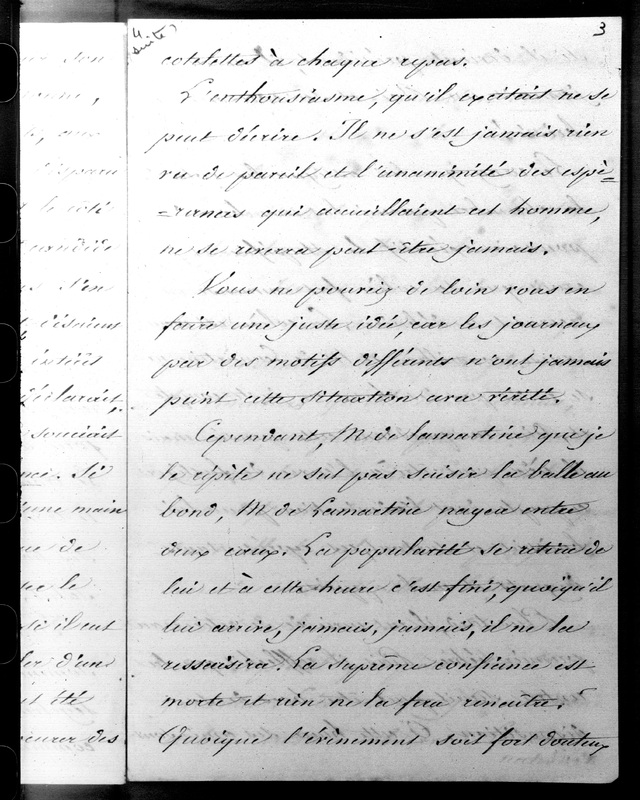 4
suite
3
cotelettes à chaque repas.
L'enthousiasme, qu'il excitait ne se
peut décrire. Il ne s'est jamais rien
vu de pareil et l'unanimité des espè=
=rances qui accueillaient cet homme,
ne se reverra peut être jamais.
Vous ne pouriez de loin vous en
faire une juste idée, car les journaux
par des motifs différents n'ont jamais
peint cette situation avec vérité.
Cependant, M de lamartine qui je
le répète ne sut pas saisir la balle au
bond, M de Lamartine nagea entre
deux eaux. La popularité se retira de
lui et à cette heure c'est fini, quoiqu'il
lui arrive, jamais, jamais, il ne la
ressaisira. La suprême confiance est
morte et rien ne la fera renaitre.
Quoique l'évènement soit fort douteux
son
disaient
déclarait,
souciait
une main
de
le
il eut
d'un
été
des